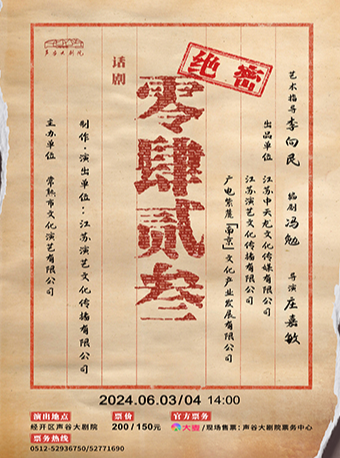 声谷大剧院
绝密
话剧
零肆贰叁
艺术指导 李向民
编剧 冯勉
导演 庄嘉敏
出品单位
江苏中天龙文化传媒有限公司
江苏演艺文化传播有限公司
广电紫荆（南京）文化产业发展有限公司
制作·演出单位：江苏演艺文化传播有限公司
主办单位 常熟市文化演艺有限公司
2024.06.03/04 14:00
演出地点
经开区声谷大剧院
票价
200/150元
官方票务
大麦/现场售票：声谷大剧院票务中心
票务热线
0512-52936750/52771690